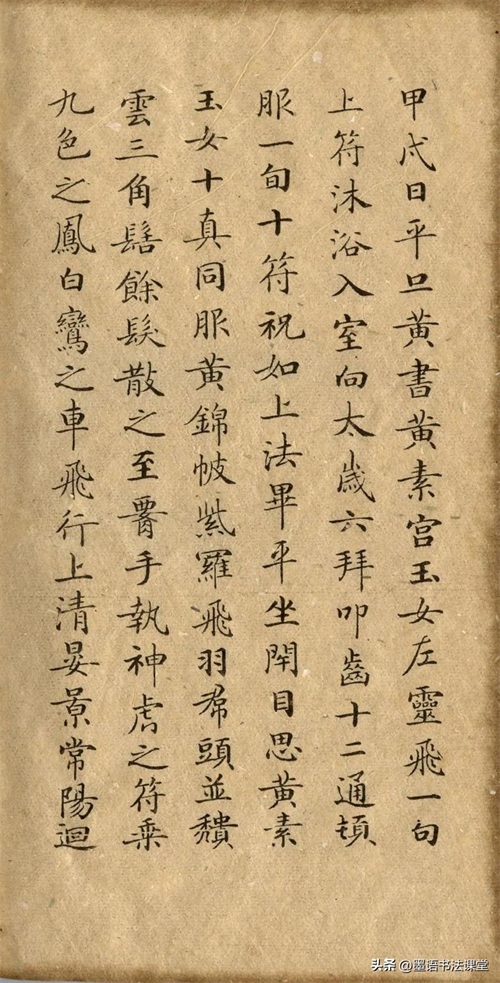 甲戌日平旦黄書黄素宫玉女左靈飛一旬
上符沐浴入室向太歲六拜叩齒十二通頓
服一旬十符祝如上法畢平坐閇目思黄素
玉女十真同服黄錦帔紫羅飛羽帬頭並頽
雲三角髻餘髮散之至署手執神虎之符乗
九色之鳳白鸞之車飛行上清晏景常陽迴
头条 @墨语书法课堂